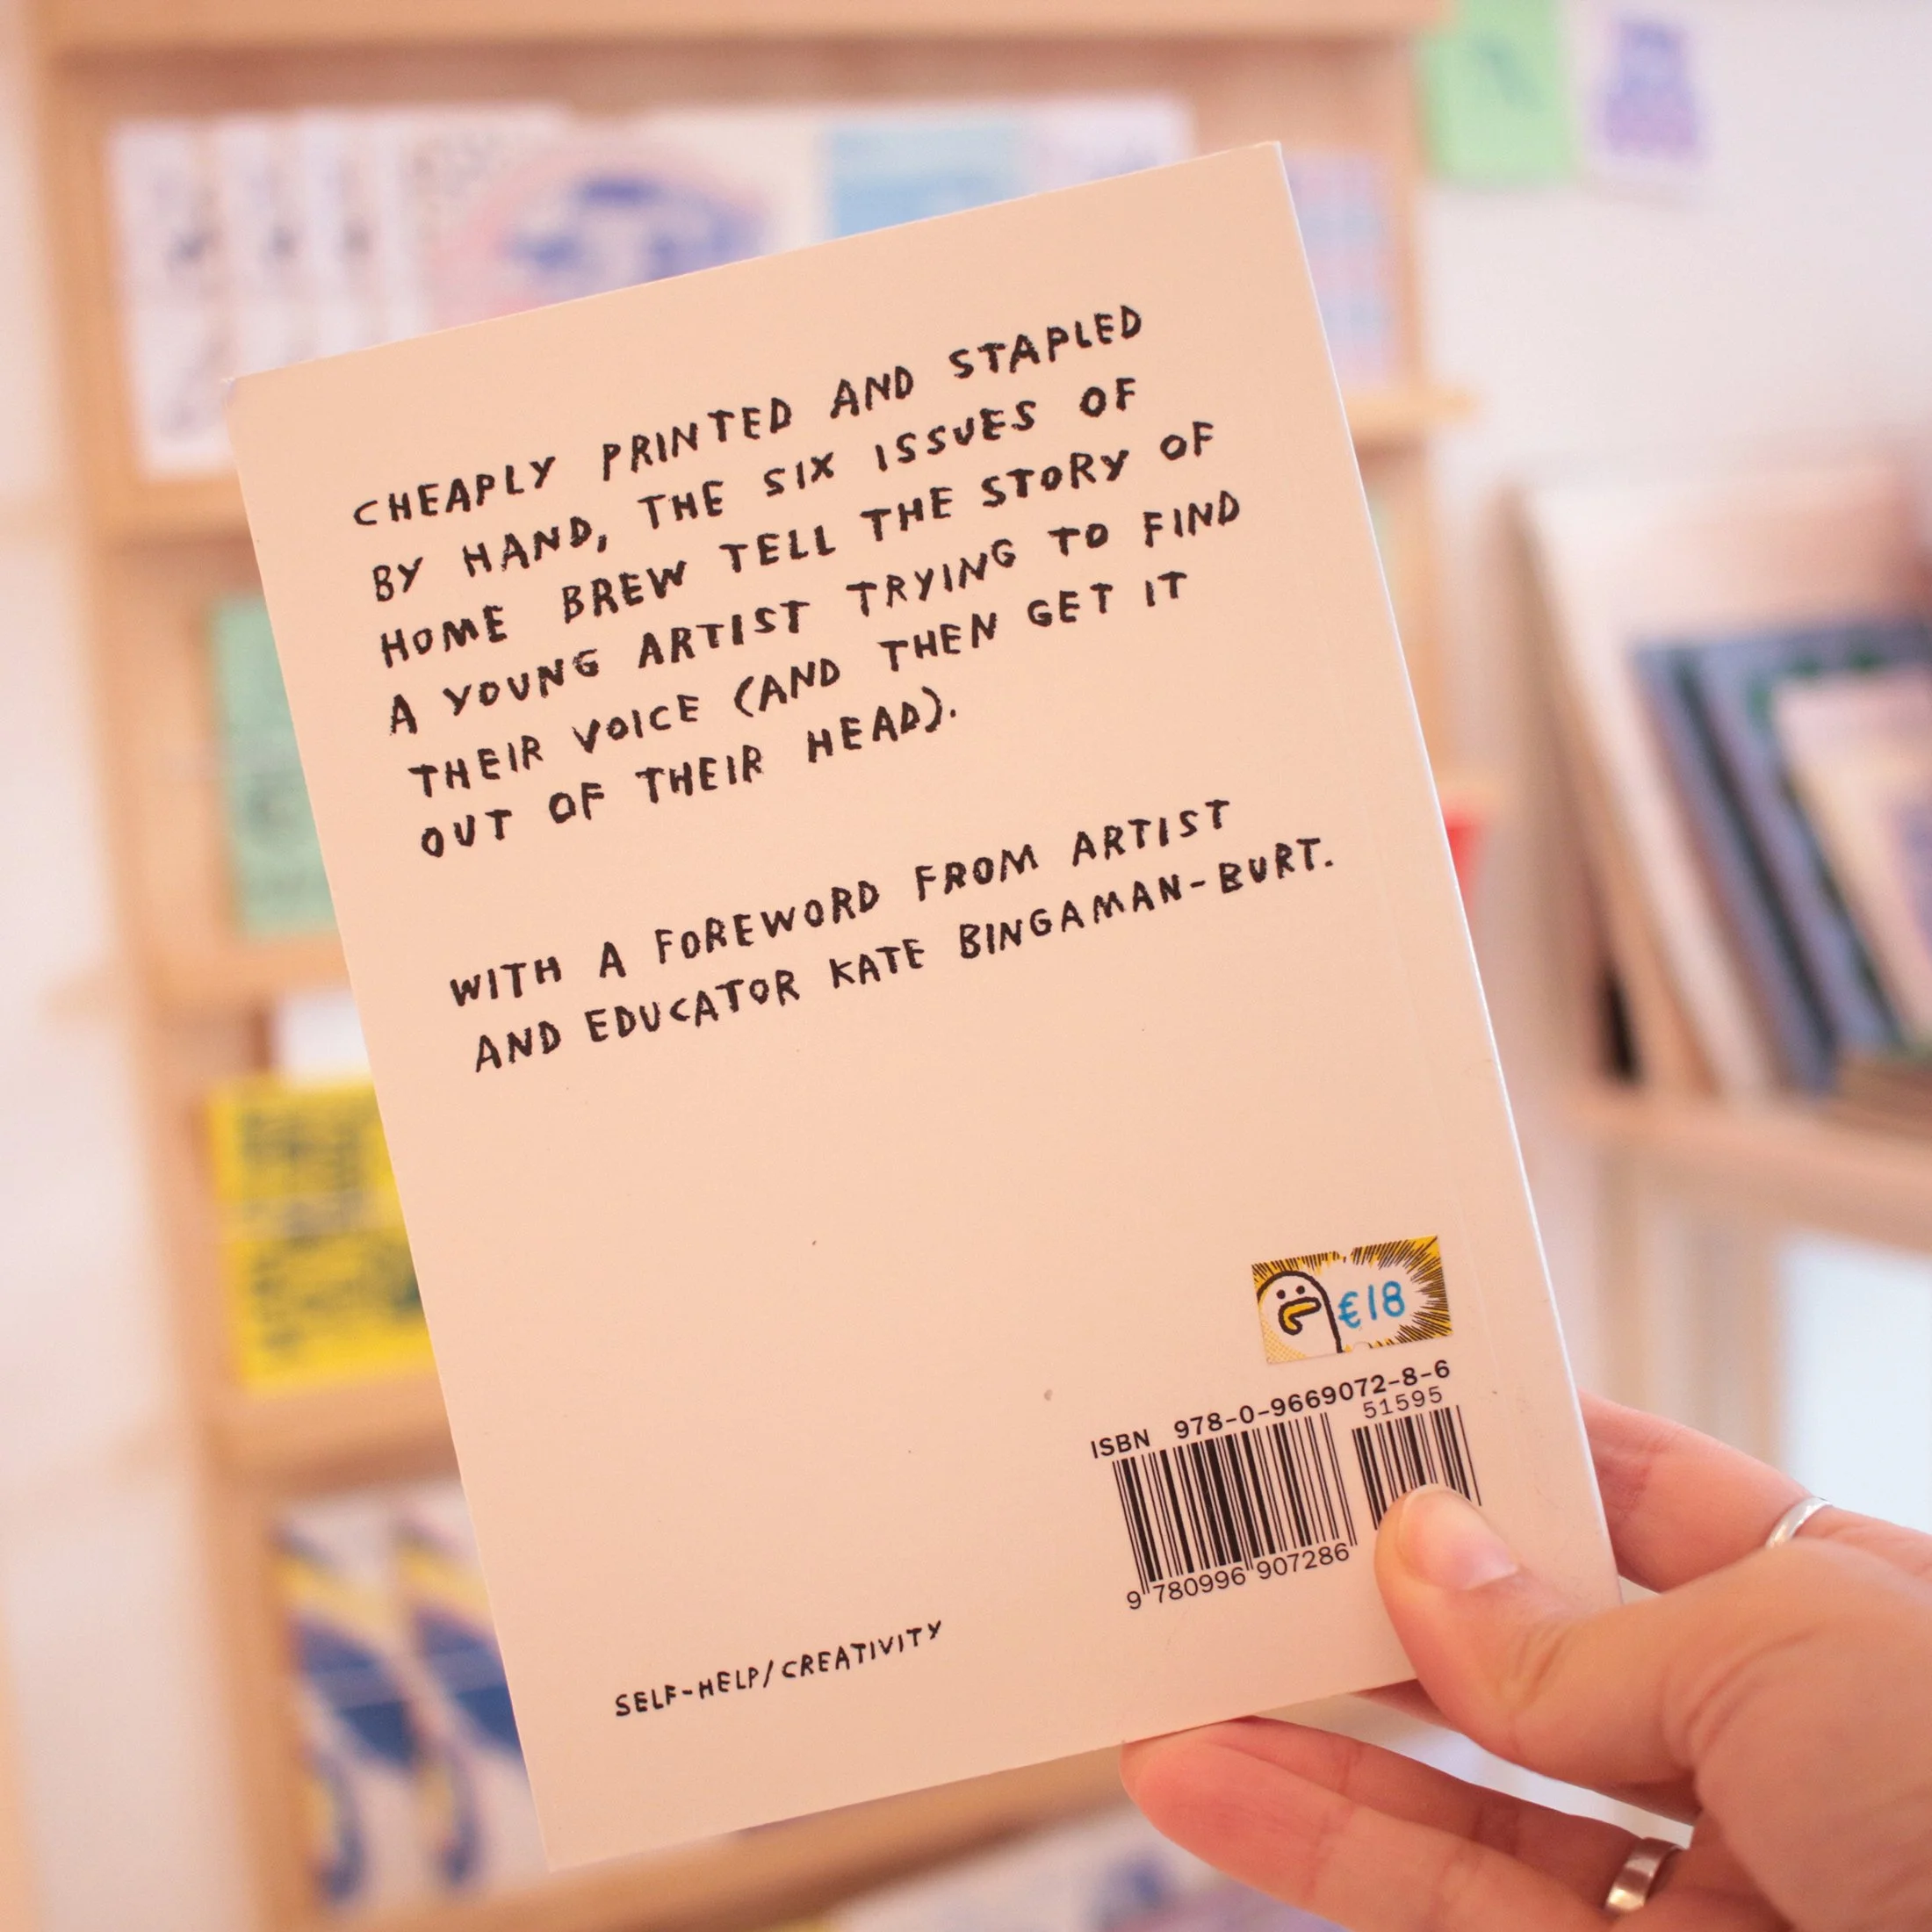 CHEAPLY PRINTED AND STAPLED
BY HAND, THE SIX ISSUES OF
HOME BREW TELL THE STORY OF
A YOUNG ARTIST TRYING TO FIND
THEIR VOICE (AND THEN GET IT
OUT OF THEIR HEAD).
WITH A FOREWORD FROM ARTIST
AND EDUCATOR KATE BINGAMAN-BURT.
€18
ISBN 978-0-9669072-8-6
51595
9 780996 907286
SELF-HELP/CREATIVITY